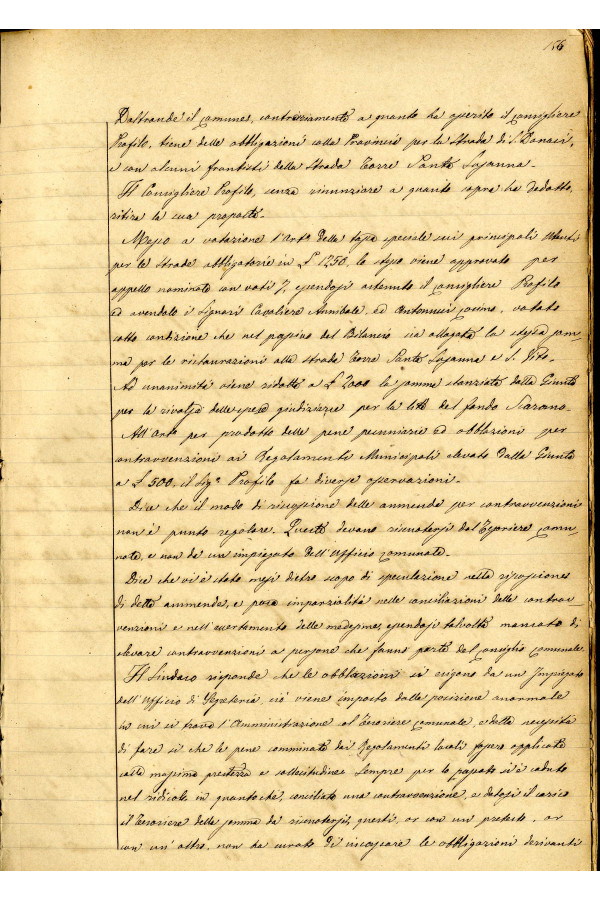 156
Daltronde il Comune, contrariamente a quanto ha asserito il Consigliere
Profilo, tiene delle obbligazioni colla Provincia per la Strada di S. Donaci,
e con alcuni frontisti della Strada Torre Santa Susanna.
Il Consigliere Profilo, senza rinunziare a quanto sopra ha dedotto,
ritira la sua proposta.
Messo a votazione l'arto della tassa speciale sui principali utenti
per le strade obbligatorie in £ 1250, lo stesso viene approvato per
appello nominale con voti 7, essendosi astenuto il Consigliere Profilo
ed avendolo i Signori Cavaliere Annibale, ed Antonucci Cosimo, votato
sotto condizione che nel passivo del Bilancio sia allogata la stessa som-
ma per le restaurazioni alla strada Torre Santa Susanna e S. Vito.
Ad unanimità viene ridotta a £ 2000 la somma stanziata dalla Giunta
per la rivolta delle spese giudiziarie per la lite del fondo Scazono.
All'arto per prodotto delle pene pecuniarie ed obblazioni per
contravvenzioni ai Regolamenti Municipali elevato dalla Giunta
a £ 500, il Sigr Profilo fa diverse osservazioni.
Dice che il modo di riscossione delle ammende per contravvenzioni
non è punto regolare. Queste devono riscuotersi dal Tesoriere Comu-
nale, e non da un impiegato dell'Ufficio Comunale.
Dice che vi è stato mesi dietro scopo di speculazione nella riscossione
di dette ammende, e poca imparzialità nelle conciliazioni delle contrav-
venzioni e nell'accertamento delle medesime, essendosi talvolta mancato di
elevare contravvenzioni a persone che fanno parte del Consiglio Comunale.
Il Sindaco risponde che le obblazioni si esigono da un Impiegato
dell'Ufficio di Segreteria, ciò viene imposto dalla posizione anormale
in cui si trova l'Amministrazione col Tesoriere Comunale, e dalla necessità
di fare sì che le pene comminate dai Regolamenti locali fossero applicate
colla massima prestezza e sollecitudine. Sempre per lo passato si è caduto
nel ridicolo, in quanto che, conciliata una contravvenzione, e datosi il carico
il Tesoriere della somma da riscuotersi, questi, or con un pretesto, or
con un'altro, non ha curato di riscuotere le obbligazioni derivanti